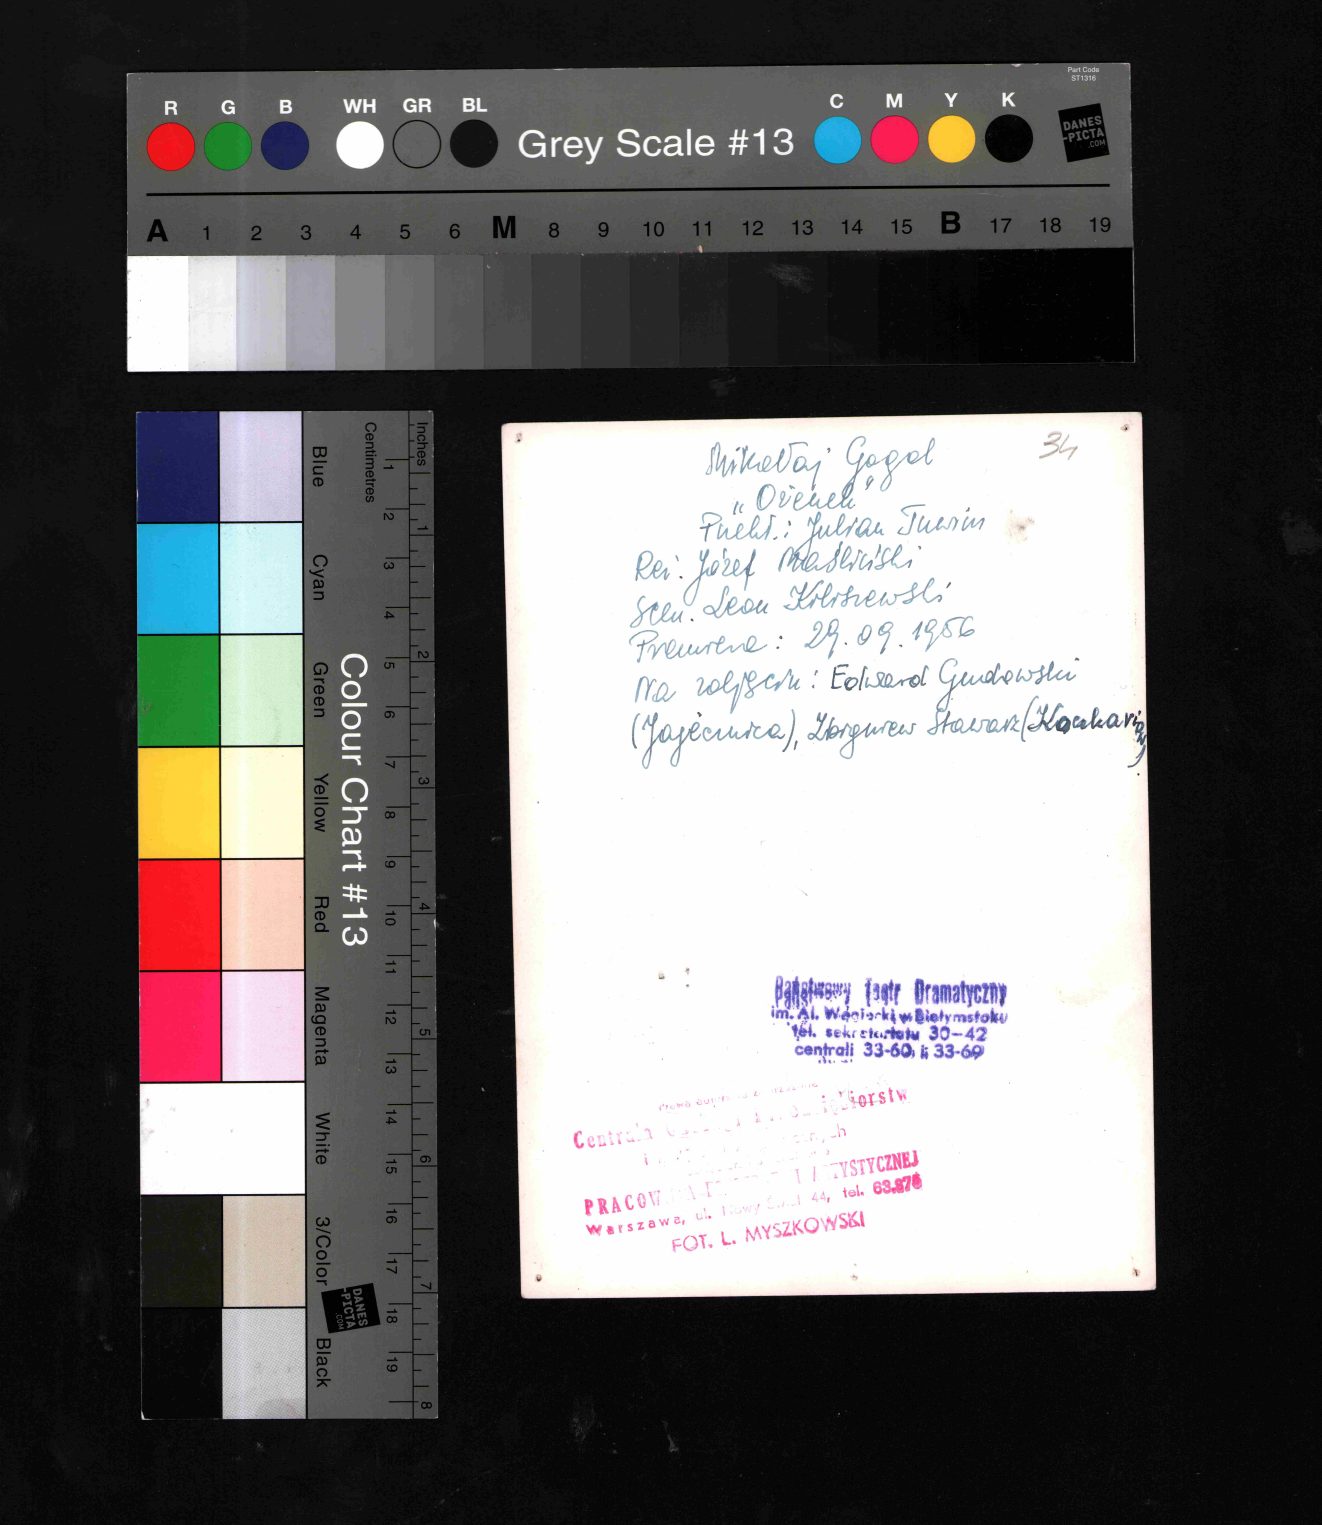 Part Code
ST1316
R G B WH GR BL Grey Scale #13 C M Y K
DANES
-PICTA
.COM
A 1 2 3 4 5 6 M 8 9 10 11 12 13 14 15 B 17 18 19
Inches
Centimetres
1 2 3 4 5 6 7 8 9 10 11 12 13 14 15 16 17 18 19
1 2 3 4 5 6 7 8
Colour Chart #13
Blue
Cyan
Green
Yellow
Red
Magenta
White
3/Color
Black
DANES
-PICTA
.COM
34
Mikołaj Gogol
„Ożenek"
Przekł.: Julian Tuwim
Reż. Józef Maśliński
Scen. Leon
Premiera: 29.09.1956
Na zdjęciu: Edward Gendowski
(Jajecznica), Zbigniew Stawarz (Koczkariow)
Państwowy Teatr Dramatyczny
im. Al. Węgierki w Białymstoku
tel. sekretariatu 30-42
centrali 33-60 i 33-69
Centrala
PRACOWNIA ARTYSTYCZNEJ
Warszawa, ul. Nowy Świat 44, tel.
FOT. L. MYSZKOWSKI